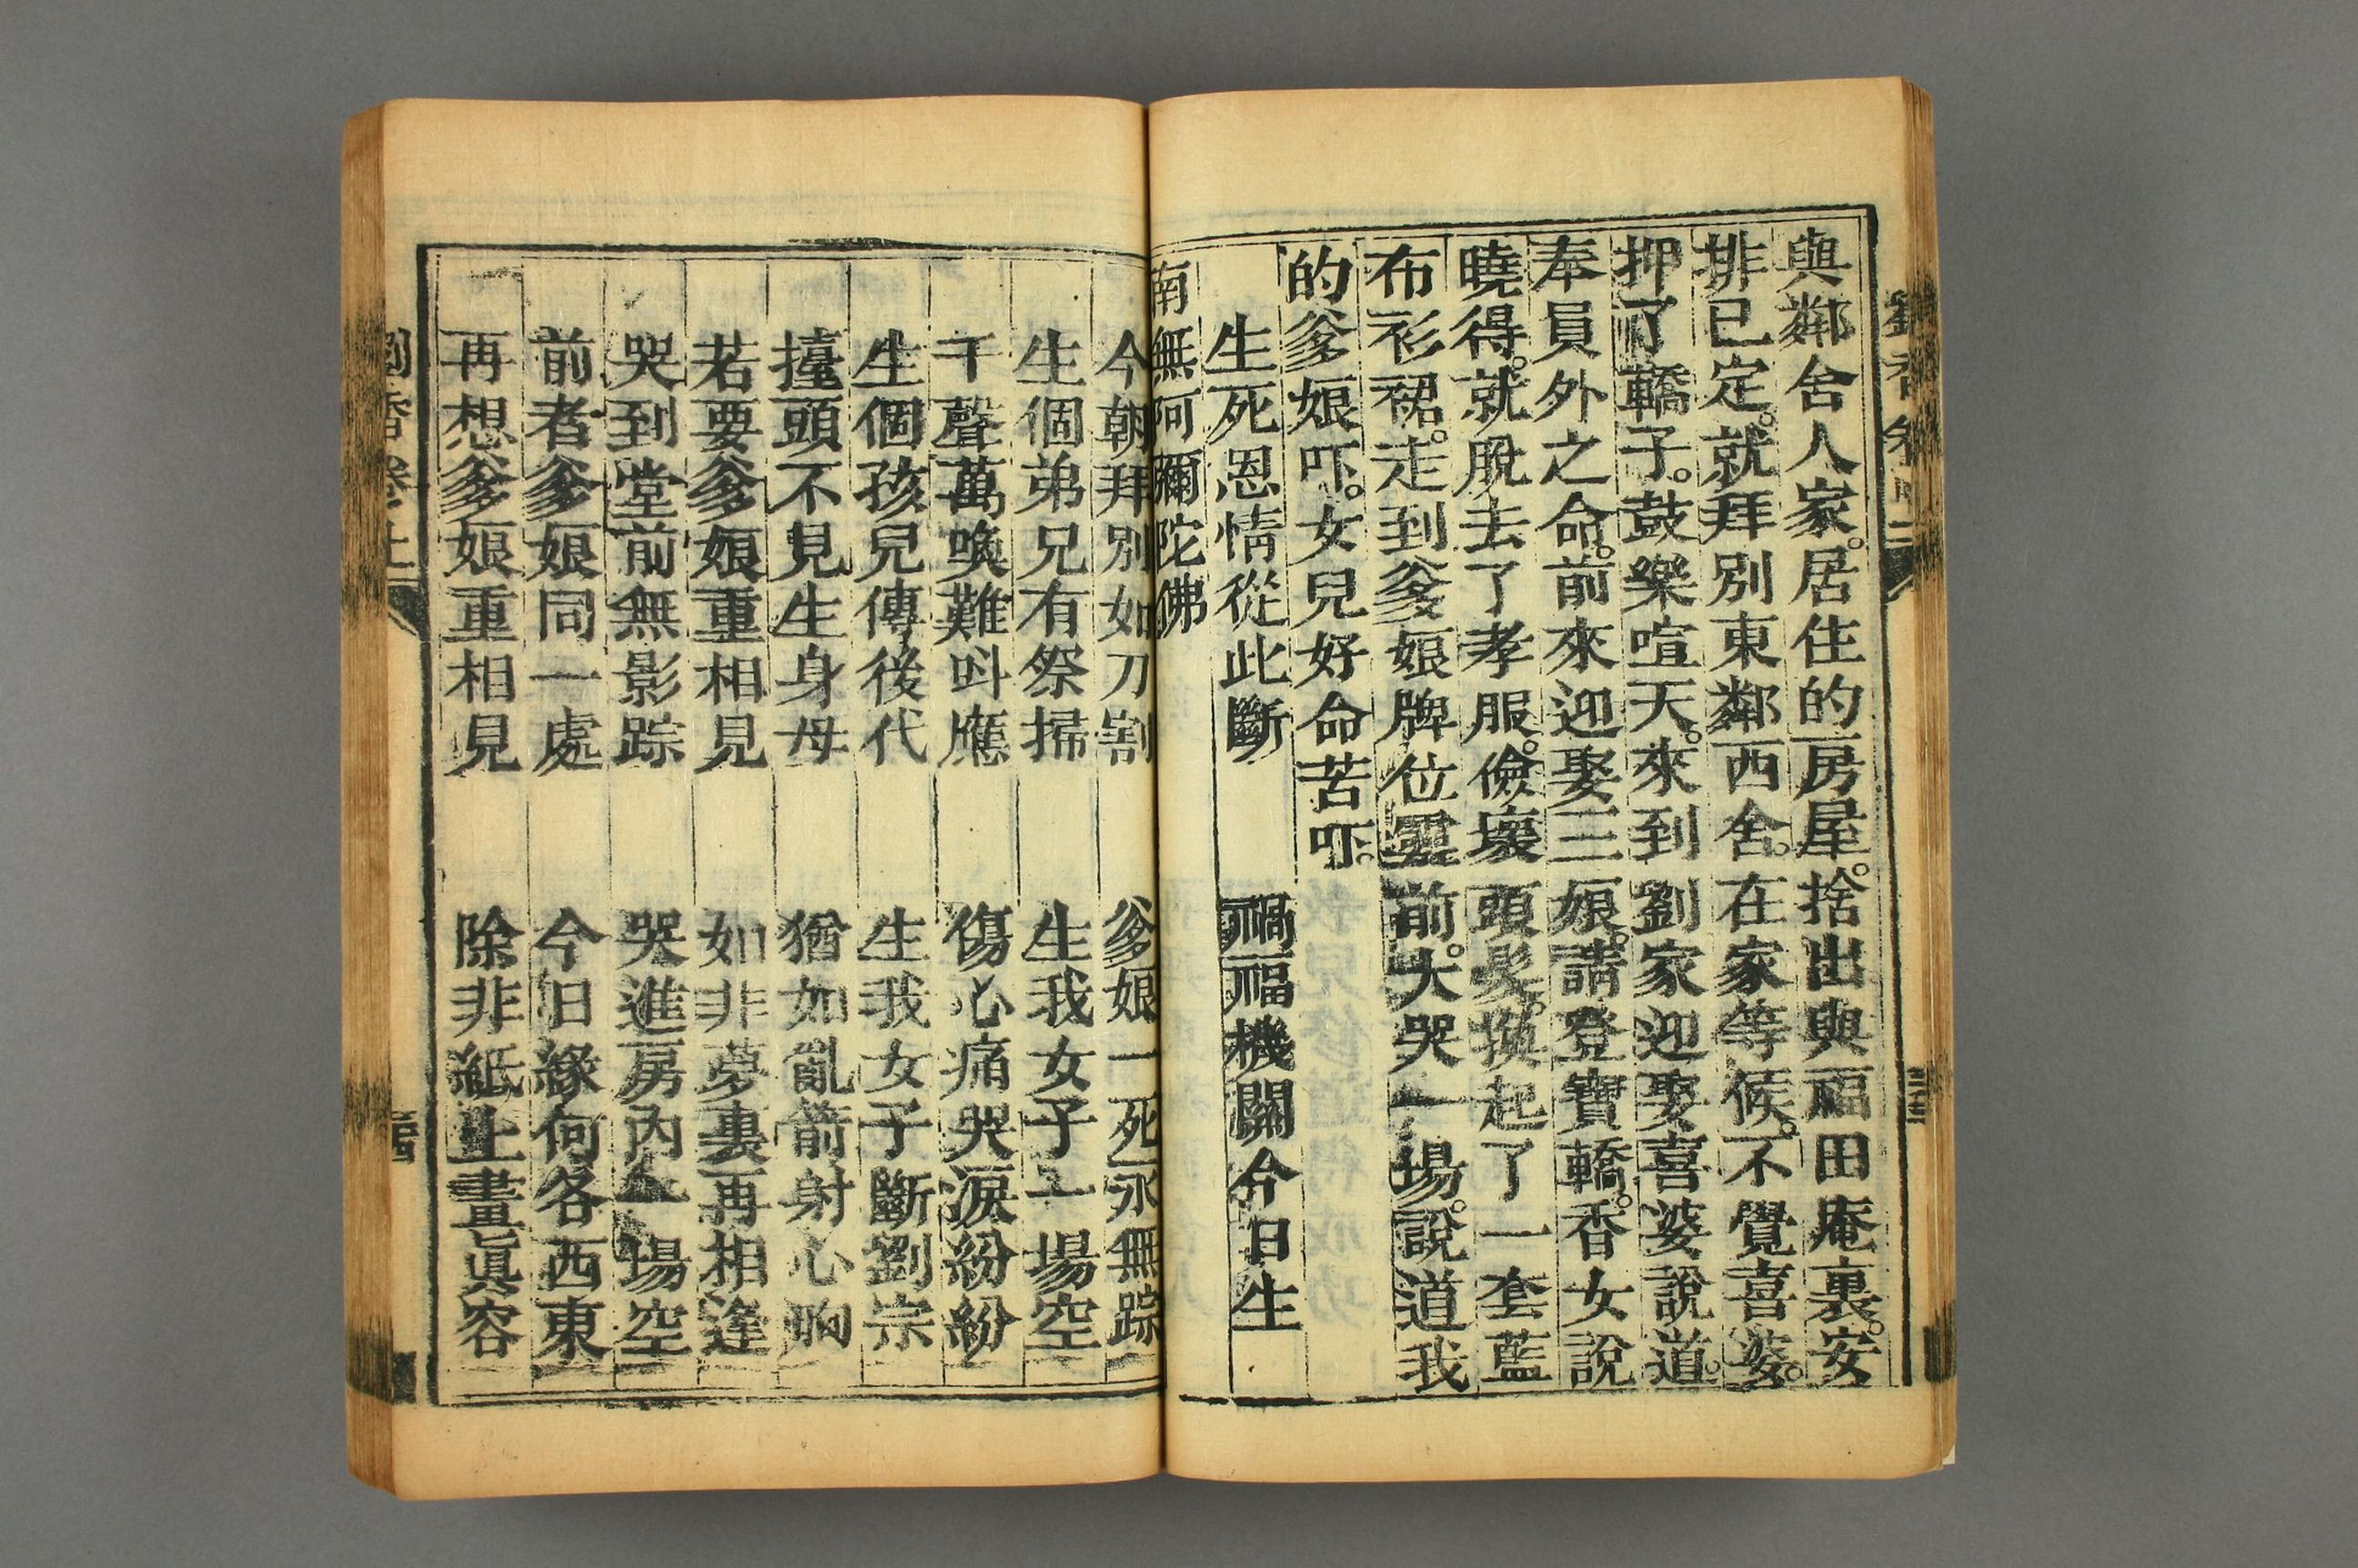 與鄰舍人家。居住的房屋。捨出與福田庵裏。安
排已定。就拜別東鄰西舍。在家等候。不覺喜婆。
押了轎子。鼓樂喧天。來到劉家迎娶喜婆說道。
奉員外之命。前來迎娶三娘。請登寶轎。香女說
曉得。就脫去了孝服。儉壞頭髮。換起了一套藍
布衫裙。走到爹娘牌位靈前。大哭一場。說道我
的爹娘吓。女兒好命苦吓。
生死恩情從此斷 禍福機關今日生
南無阿彌陀佛
今朝拜別如刀割 爹娘一死永無踪
生個弟兄有祭掃 生我女子一場空
千聲萬喚難呌應 傷心痛哭淚紛紛
生個孩兒傳後代 生我女子斷劉宗
擡頭不見生身母 猶如亂箭射心胸
若要爹娘重相見 如非夢裏再相逢
哭到堂前無影踪 哭進房內一場空
前者爹娘同一處 今日緣何各西東
再想爹娘重相見 除非紙上畫眞容
劉香卷上